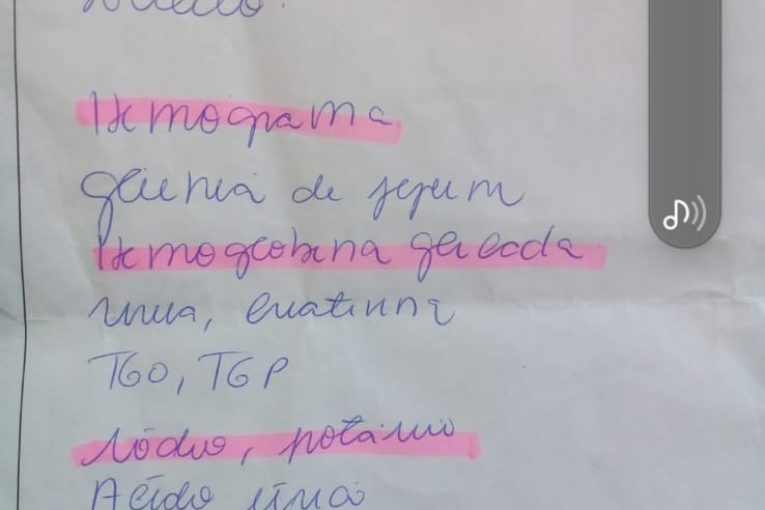 Hemograma
glicemia de jejum
Hemoglobina glicada
ureia, creatinina
TGO, TGP
sódio, potássio
Ácido úrico